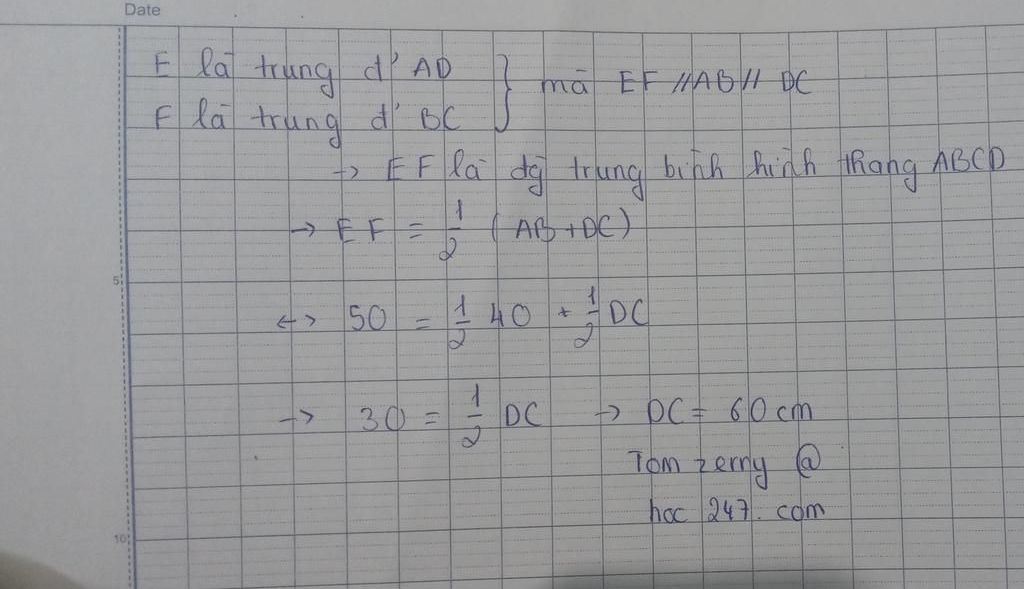 Date
E là trung đ' AD } mà EF // AB // DC
F là trung đ' BC
→ EF là đg trung bình hình thang ABCD
→ EF = 1/2 (AB + DC)
5
↔ 50 = 1/2 40 + 1/2 DC
→ 30 = 1/2 DC → DC = 60 cm
Tom zerry @
hoc 247. com
10